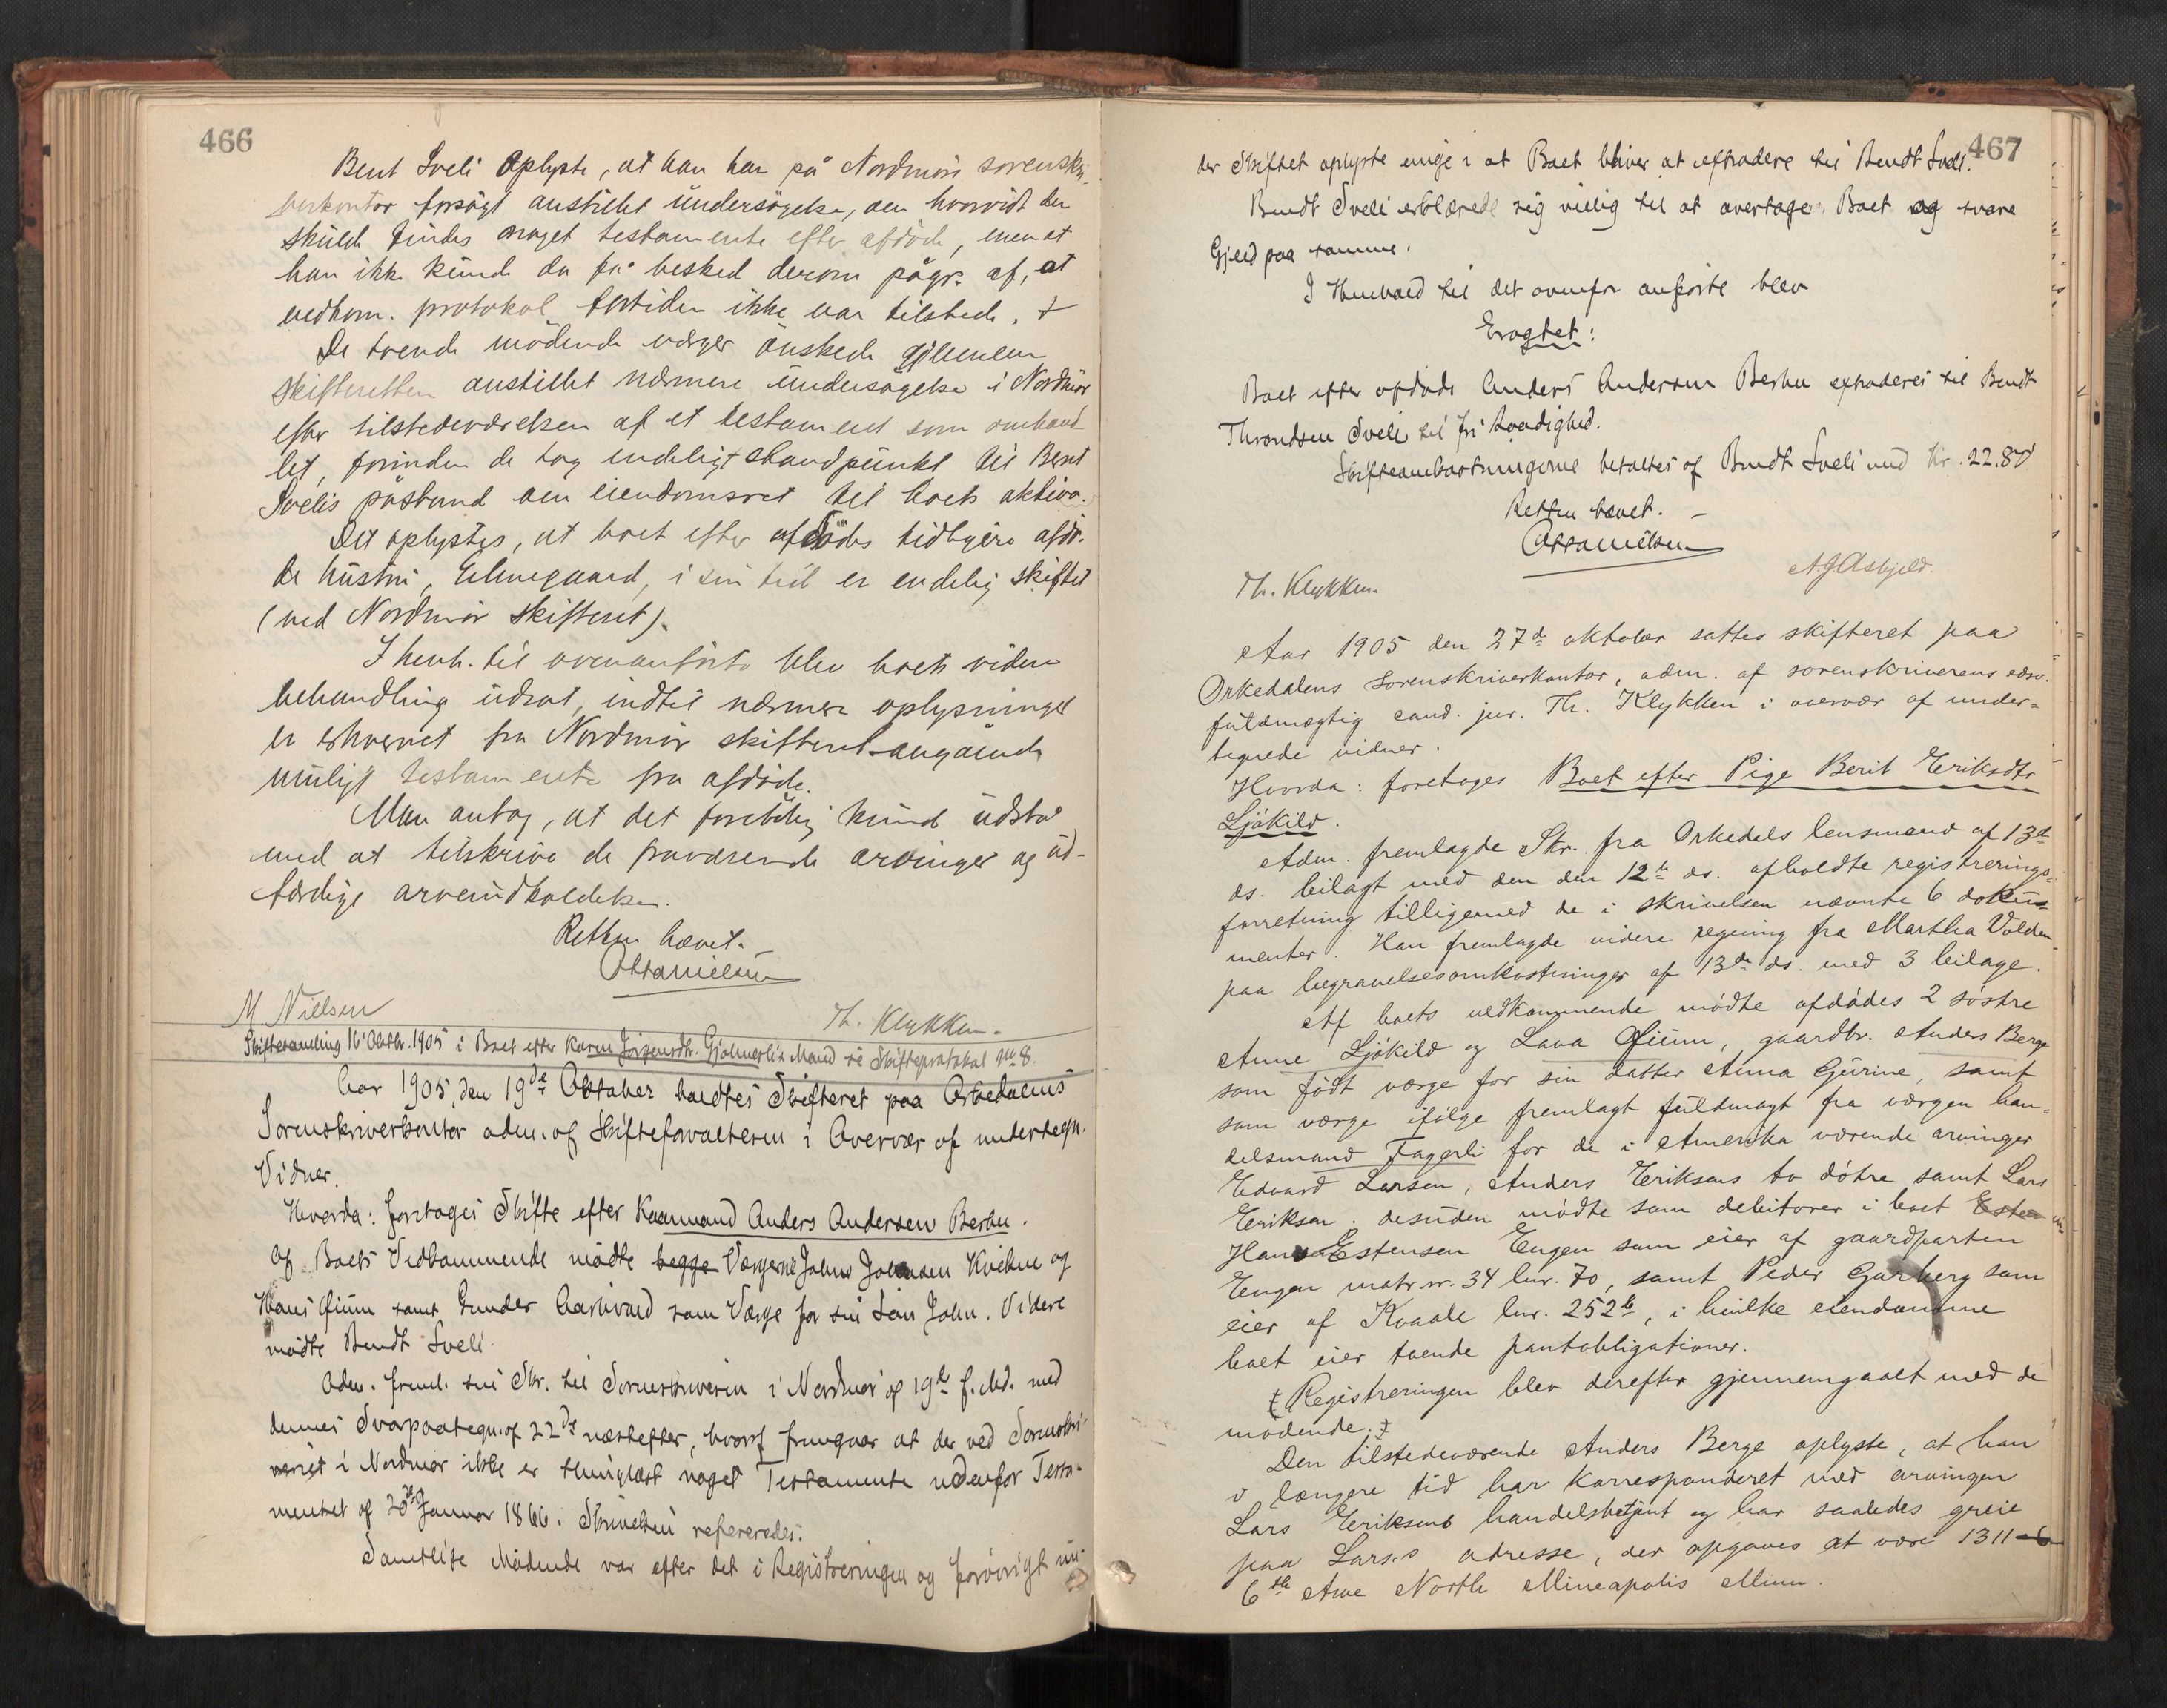 466
Bent Sveli oplyste, at han har på Nordmøre sorenskri-
verkontor forsøgt anstillet undersøgelse, om hvorvidt der
skulde findes noget testamente efter afdøde, men at
han ikke kunde da få besked derom pågr. af, at
vedkom. protokol fortiden ikke var tilstede. +
De tvende mødende værger ønskede gjennem
skifteretten anstillet nærmere undersøgelse i Nordmør
efter tilstedeværelsen af et testament som omhand-
let, forinden de tog endeligt standpunkt til Bent
Svelis påstand om eiendomsret til boets aktiva.
Det oplystes, at boet efter afdødes tidligere afdø-
de hustru, Elinegaard, i sin tid er endelig skiftet
(ved Nordmør skifteret).
I henh. til ovenanførte blev boets videre
behandling udsat, indtil nærmere oplysninger
er erhvervet fra Nordmør skifteret angående
muligt testamente fra afdøde.
Man antog, at det foreløbig kunde udstå
med at tilskrive de fraværende arvinger og ud-
færdige arveindkaldelse.
Retten hævet.
Ottanielsen
M Nielsen
Th. Klykken.
Skiftesamling 16 Oktbr. 1905 i Boet efter Karen Jørgensdtr. Gjølmesli & Mand se Skifteprotokol No 8.
Aar 1905, den 19de Oktober holdtes Skifteret paa Orkedalens
Sorenskriverkontor adm. af Skifteforvalteren i Overvær af undertegn.
Vidner.
Hvorda: foretoges Skifte efter Kaarmand Anders Andersen Berbu.
Af Boets Vedkommende mødte begge Værgerne Johns Johnsen Kvikne og
Hans Qium samt Gunder Aarlivold som Værge for sin Søn John. Videre
mødte Bendt Sveli.
Adm. freml. sin Skr. til Sorenskriveren i Nordmør af 19de f. Md. med
dennes Svarpaategn. af 22de næstefter, hvoraf fremgaar at der ved Sorenskri-
veriet i Nordmør ikke er thinglæst noget Testamente udenfor Testa-
mentet af 20de Januar 1866. Skrivelsen refereredes.
Samtlige Mødende var efter det i Registreringen og forøvrigt un-
467
der Skiftet oplyste enige i at Boet bliver at extradere til Bendt Sveli.
Bendt Sveli erklærede sig villig til at overtage Boet og svare
Gjeld paa samme.
I Henhold til det ovenfor anførte blev
Eragtet:
Boet efter afdøde Anders Andersen Berbu extraderes til Bendt
Throndsen Sveli til fri Raadighed.
Skifteomkostningerne betaltes af Bendt Sveli med Kr. 22.87
Retten hævet. –
Ottanielsen
Th. Klykken.
A J Asbjeld.
Aar 1905 den 27de oktober sattes skifteret paa
Orkedalens sorenskriverkontor, adm. af sorenskriverens edsv.
fuldmægtig cand. jur. Th. Klykken i overvær af under-
tegnede vidner.
Hvorda: foretoges Boet efter Pige Berit Eriksdtr
Ljøkild.
Adm. fremlagde Skr. fra Orkedals lensmand af 13de
ds. bilagt med den den 12te ds. afholdte registrerings-
forretning tilligemed de i skrivelsen nævnte 6 doku-
menter. Han fremlagde videre regning fra Martha Volden
paa begravelsesomkostninger af 13de ds. med 3 bilage.
Af boets vedkommende mødte afdødes 2 søstre
Anne Ljøkild og Lava Qium, gaardbr. Anders Berge
som født værge for sin datter Anna Gurine, samt
som værge ifølge fremlagt fuldmagt fra værgen han-
delsmand Fagerli for de i Amerika værende arvinger
Edvard Larsen, Anders Eriksens to døtre samt Lars
Eriksen. desuden mødte som debitorer i boet Esten
Hans Estensen Engen som eier af gaardparten
Engen matr. nr. 34 lnr. 70, samt Peder Garberg som
eier af Kvaale lnr. 252b, i hvilke eiendomme
boet eier tvende pantobligationer.
Registreringen blev derefter gjennemgaaet med de
mødende.
Den tilstedeværende Anders Berge oplyste, at han
i længere tid har korresponderet med arvingen
Lars Eriksens handelsbetjent og har saaledes greie
paa Lars's adresse, der opgaves at være 1311 6
6th Ave North Mineapolis Minn.